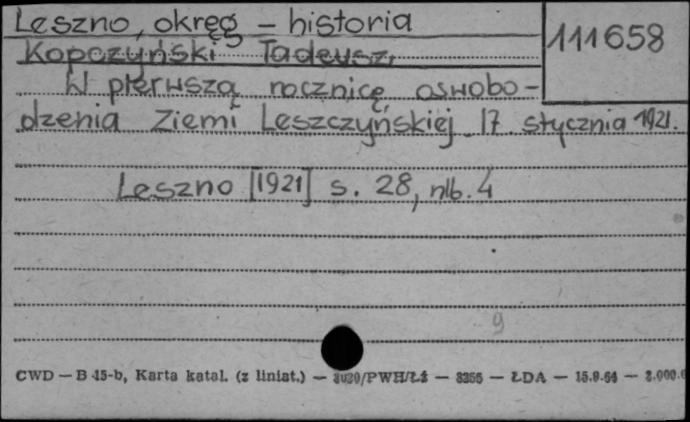 Leszno, okręg - historia
111658
Kopczyński Tadeusz,
W pierwszą rocznicę oswobo-
dzenia Ziemi Leszczyńskiej 17 stycznia 1921.
Leszno [1921] s. 28, nlb. 4
9
CWD — B 15-b, Karta katal. (z liniat.) — /PWH/Łż — — ŁDA — 15.9.64 —